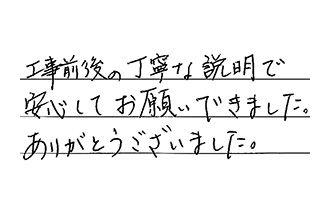 工事前後の丁寧な説明で
安心してお願いできました。
ありがとうございました。